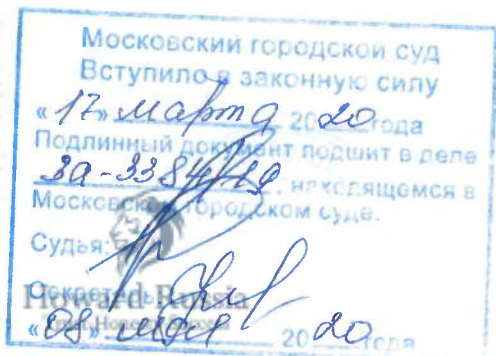 Московский городской суд
Вступило в законную силу
«17» марта 2020 года
Подлинный документ подшит в деле
3а-3384/19, находящемся в
Московском городском суде.
Судья:
Секретарь:
Howard Russia
«08» мая 2020 года